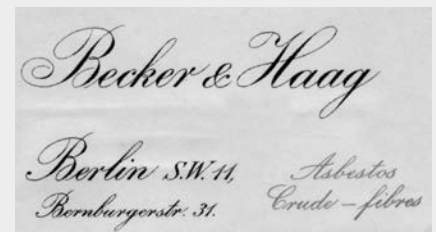 Becker & Haag
Berlin S.W. 11,
Bernburgerstr. 31.
Asbestos
Crude – fibres